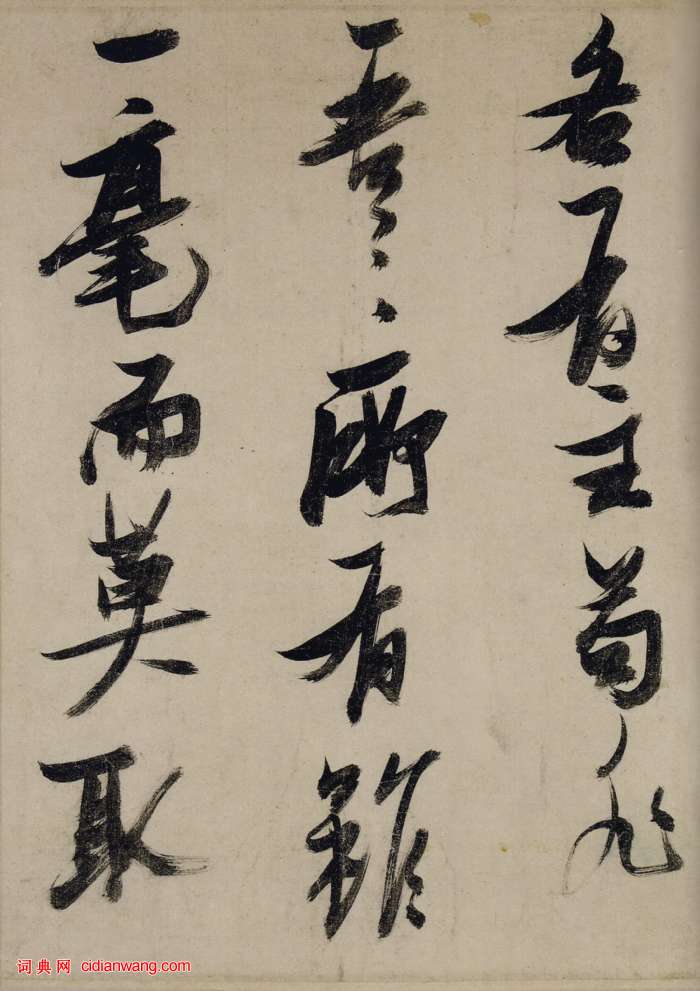 各有主苟非
吾之所有雖
一毫而莫取
词典网 cidianwang.com